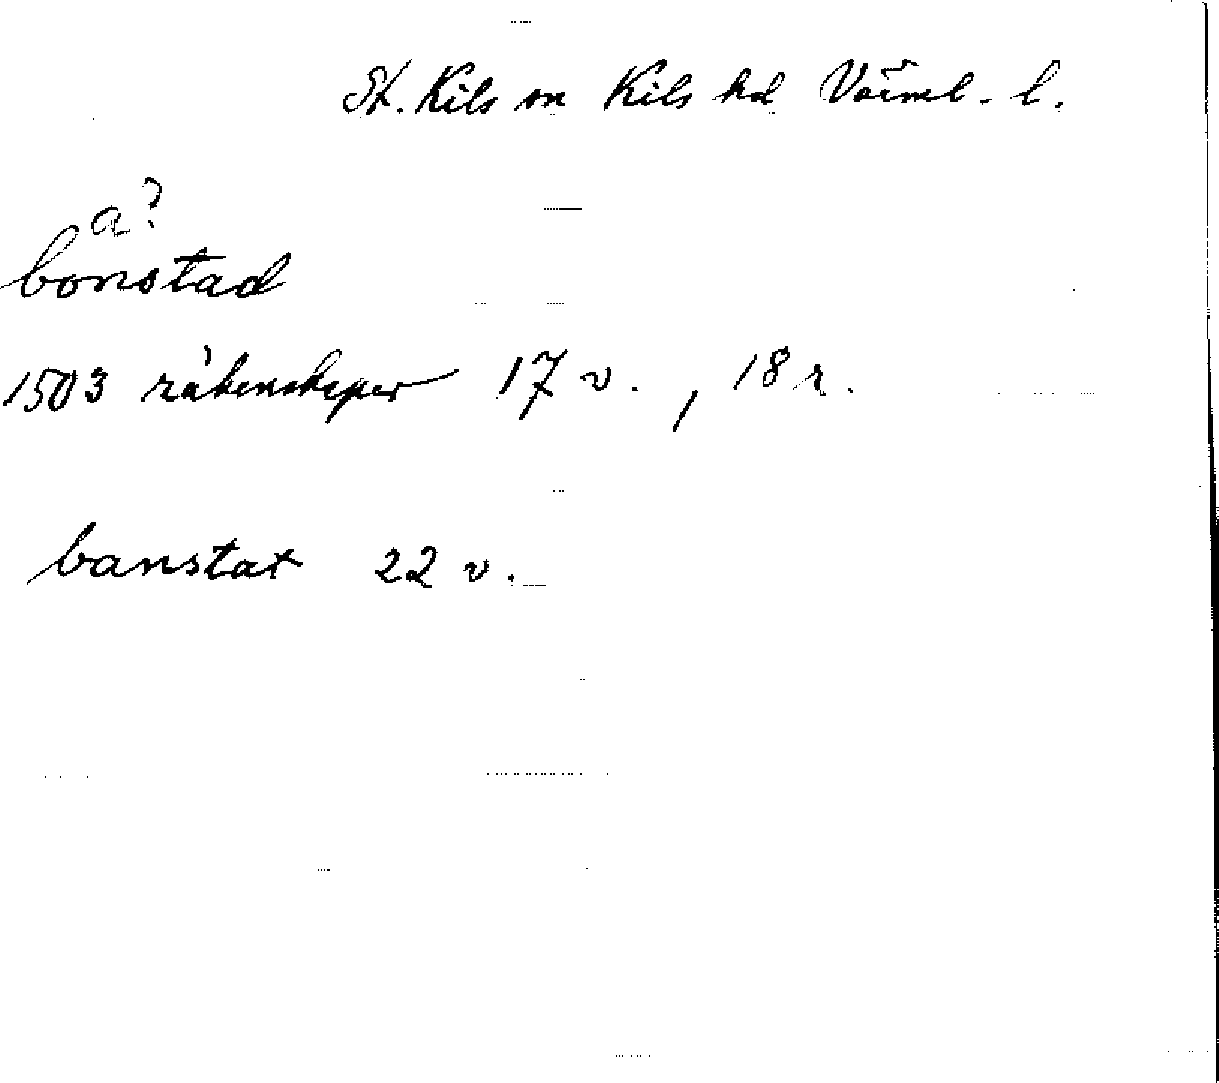 St. Kils sn Kils hd Värml. l.
a?
bonstad
1503 räkenskaper 17 v., 18 r.
banstat 22 v.